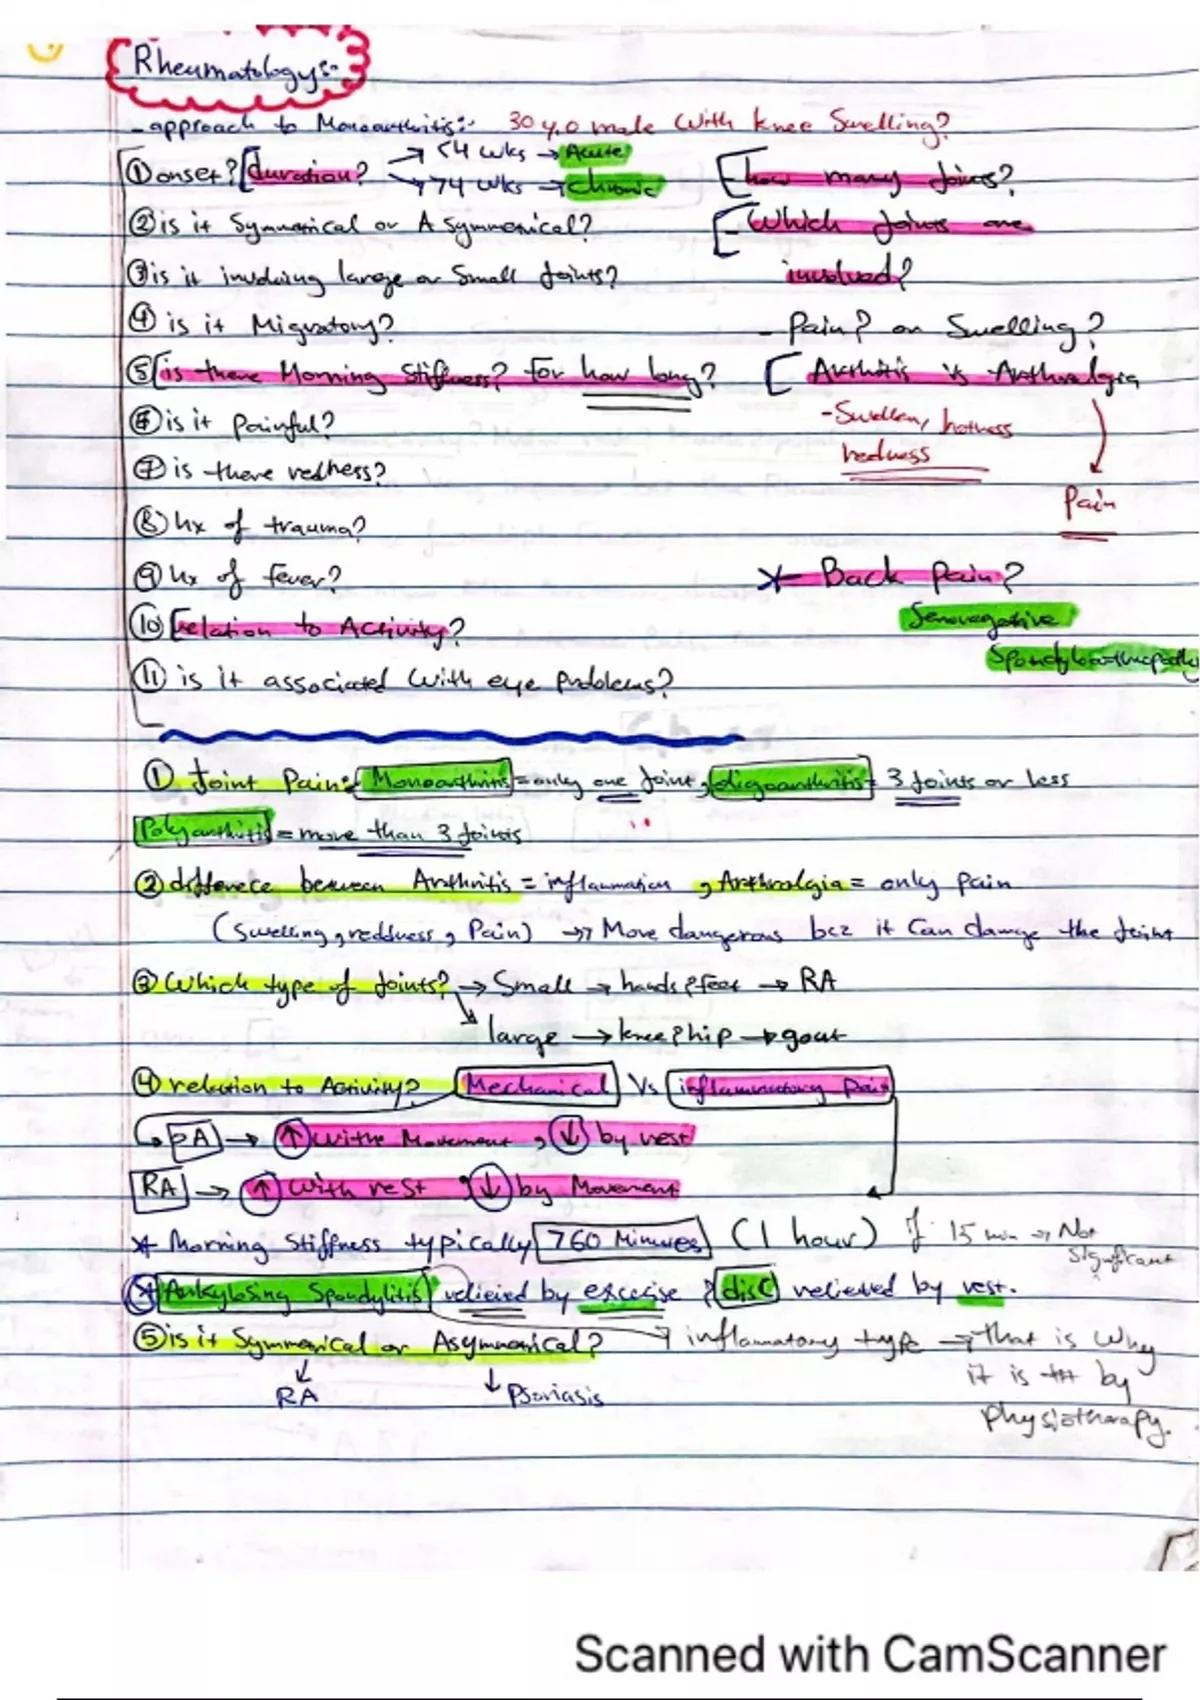 Rheumatology:-
- approach to Monoarthritis:- 30 y.o male with knee Swelling?
① onset? [duration? → <4 wks → Acute
→ >4 wks → chronic
[how many Joints?
② is it Symmetrical or Asymmetrical?
[- Which Joints are
③ is it involving large or Small Joints?
involved?
④ is it Migratory?
- Pain? or Swelling?
⑤ [is there Morning Stiffness? For how long?
[Arthritis vs Arthralgia
⑥ is it Painful?
- Swollen, hotness
redness
⑦ is there redness?
Pain
⑧ Hx of trauma?
⑨ Hx of fever?
* Back Pain?
⑩ [relation to Activity?
Seronegative
Spondyloarthropathy
⑪ is it associated with eye Problems?
① Joint Pain: Monoarthritis = only one Joint, oligoarthritis = 3 Joints or less
Polyarthritis = more than 3 Joints
② differece between Arthritis = inflammation , Arthralgia = only Pain
(Swelling, reddness, Pain) → More dangerous bcz it Can damage the Joint
③ Which type of Joints? → Small → hands & feet → RA
↘ large → knee & hip → gout
④ relation to Activity? Mechanical Vs inflammatory Pain
↳ OA → ↑ withe Movement , ↓ by rest
RA → ↑ with rest , ↓ by Movement
* Morning Stiffness typically >60 Minutes (1 hour) if 15 min → Not
Significant
* Ankylosing Spondylitis relieved by excecise & disc relieved by rest.
⑤ is it Symmetrical or Asymmetrical? → inflammatory type → that is why
it is ttt by
physiotherapy.
↓ RA
↓ Psoriasis
Scanned with CamScanner